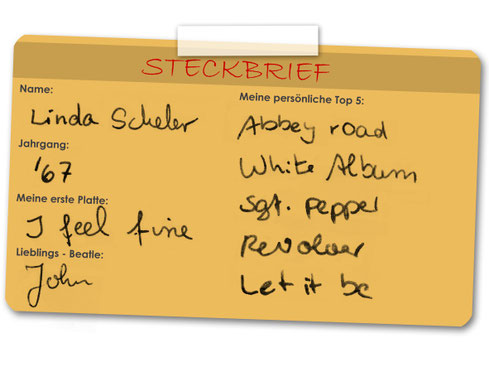 STECKBRIEF
Name:
Linda Scheler
Jahrgang:
'67
Meine erste Platte:
I feel fine
Lieblings - Beatle:
John
Meine persönliche Top 5:
Abbey road
White Album
Sgt. pepper
Revolver
Let it be